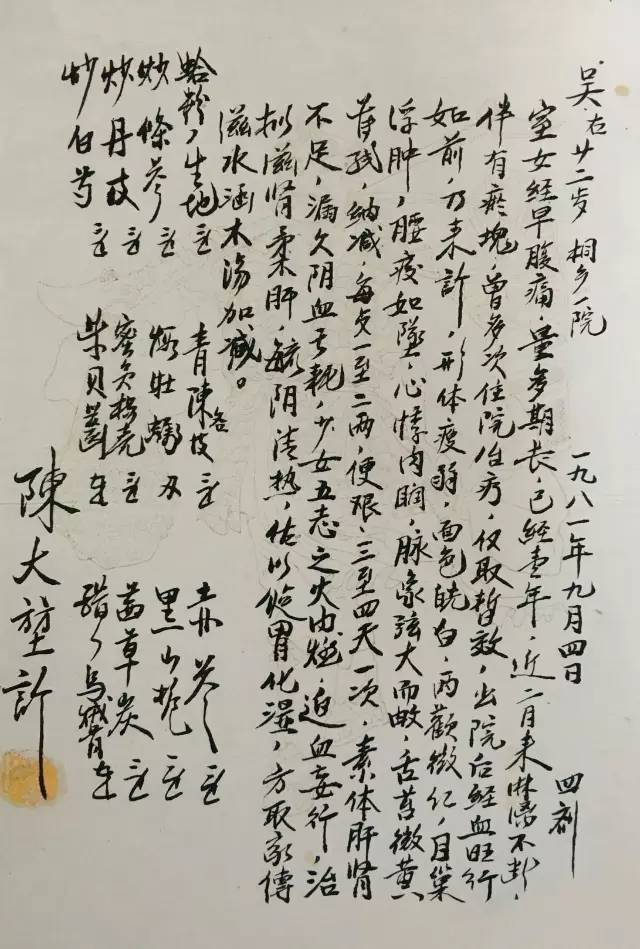 吴右 廿二岁 桐乡一院 一九八一年九月四日 四剂
室女经早腹痛,量多期长,已经壹年,近二月来淋漓不断,
伴有瘀块,曾多次住院治疗,仅取暂效,出院后经血旺行
如前,乃来诊,形体疲弱,面色㿠白,两颧微红,目窠
浮肿,腰痠如坠,心悸肉瞤,脉象弦大而,舌苔微黄
薄,纳减,每一至二两,便艰,三至四天一次,素体肝肾
不足,漏久阴血亏耗,少女五志之火内燃,迫血妄行,治
拟滋肾柔肝,毓阴清热,佐以和胃化湿,方取家传
滋水涵木汤加减。
蛤粉 生地 青陈各 赤芩
炒條参 煅牡蛎 黑山栀
炒丹皮 蜜炙壳 茜草炭
炒白芍 紫贝齿 醋乌贼骨
陳大堃诊